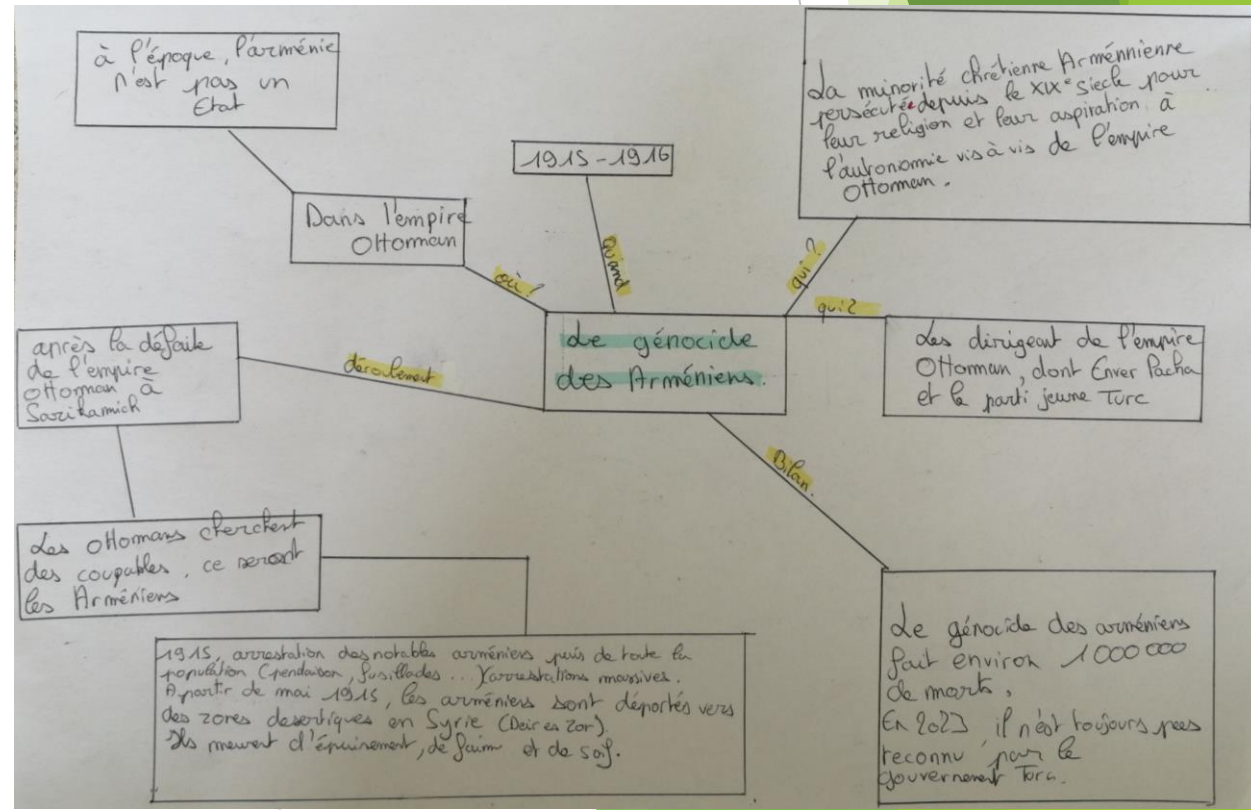 à l'époque, l'arménie
n'est pas un
Etat
Dans l'empire
Ottoman
où ?
1915-1916
Quand
La minorité chrétienne Arménnienne
persécutée depuis le XIXe siecle pour
leur religion et leur aspiration à
l'autonomie vis à vis de l'empire
Ottoman.
qui ?
qui ?
Les dirigeant de l'empire
Ottoman, dont Enver Pacha
et le parti jeune Turc
Le génocide
des Arméniens.
déroulement
après la défaite
de l'empire
ottoman à
Sarikamich
Les ottomans cherchent
des coupables, ce seront
les Arméniens
1915, arrestation des notables arméniens puis de toute la
population (pendaison, fusillades ... ) arrestations massives.
A partir de mai 1915, les arméniens sont déportés vers
des zones desertiques en Syrie (Deir es Zor).
Ils meurent d'épuisement, de faim et de soif.
Bilan.
Le génocide des arméniens
fait environ 1 000 000
de morts,
En 2023 il n'est toujours pas
reconnu par le
gouvernement Turc.